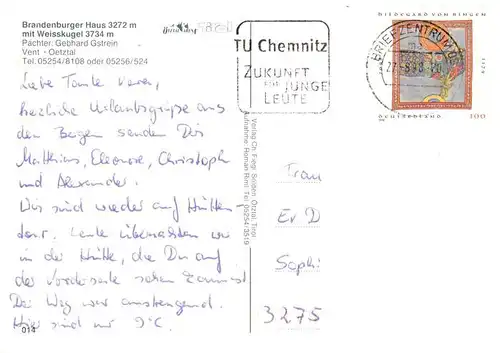 Brandenburger Haus 3272 m
mit Weisskugel 3734 m
Pächter: Gebhard Gstrein
Vent - Oetztal
Tel. 05254/8108 oder 05256/524
Liebe Tante Vera,
herzliche Urlaubsgrüsse aus
den Bergen senden Dir
Matthias, Eleonore, Christoph
und Alexander.
Wir sind wieder auf Hütten-
tour. Heute übernachten wir
in der Hütte, die Du auf
der Vorderseite sehen kannst
Der Weg war anstrengend.
Hier sind nur 9°C.
014
Verlag Ch. Fiegl, Sölden, Oetztal, Tirol
Aufnahme: Roman Riml, Tel. 05254/3519
TU Chemnitz
ZUKUNFT
FÜR JUNGE
LEUTE
BRIEFZENTRUM
HILDEGARD VON BINGEN
DEUTSCHLAND
100
Frau
Er D
Sophi
3275